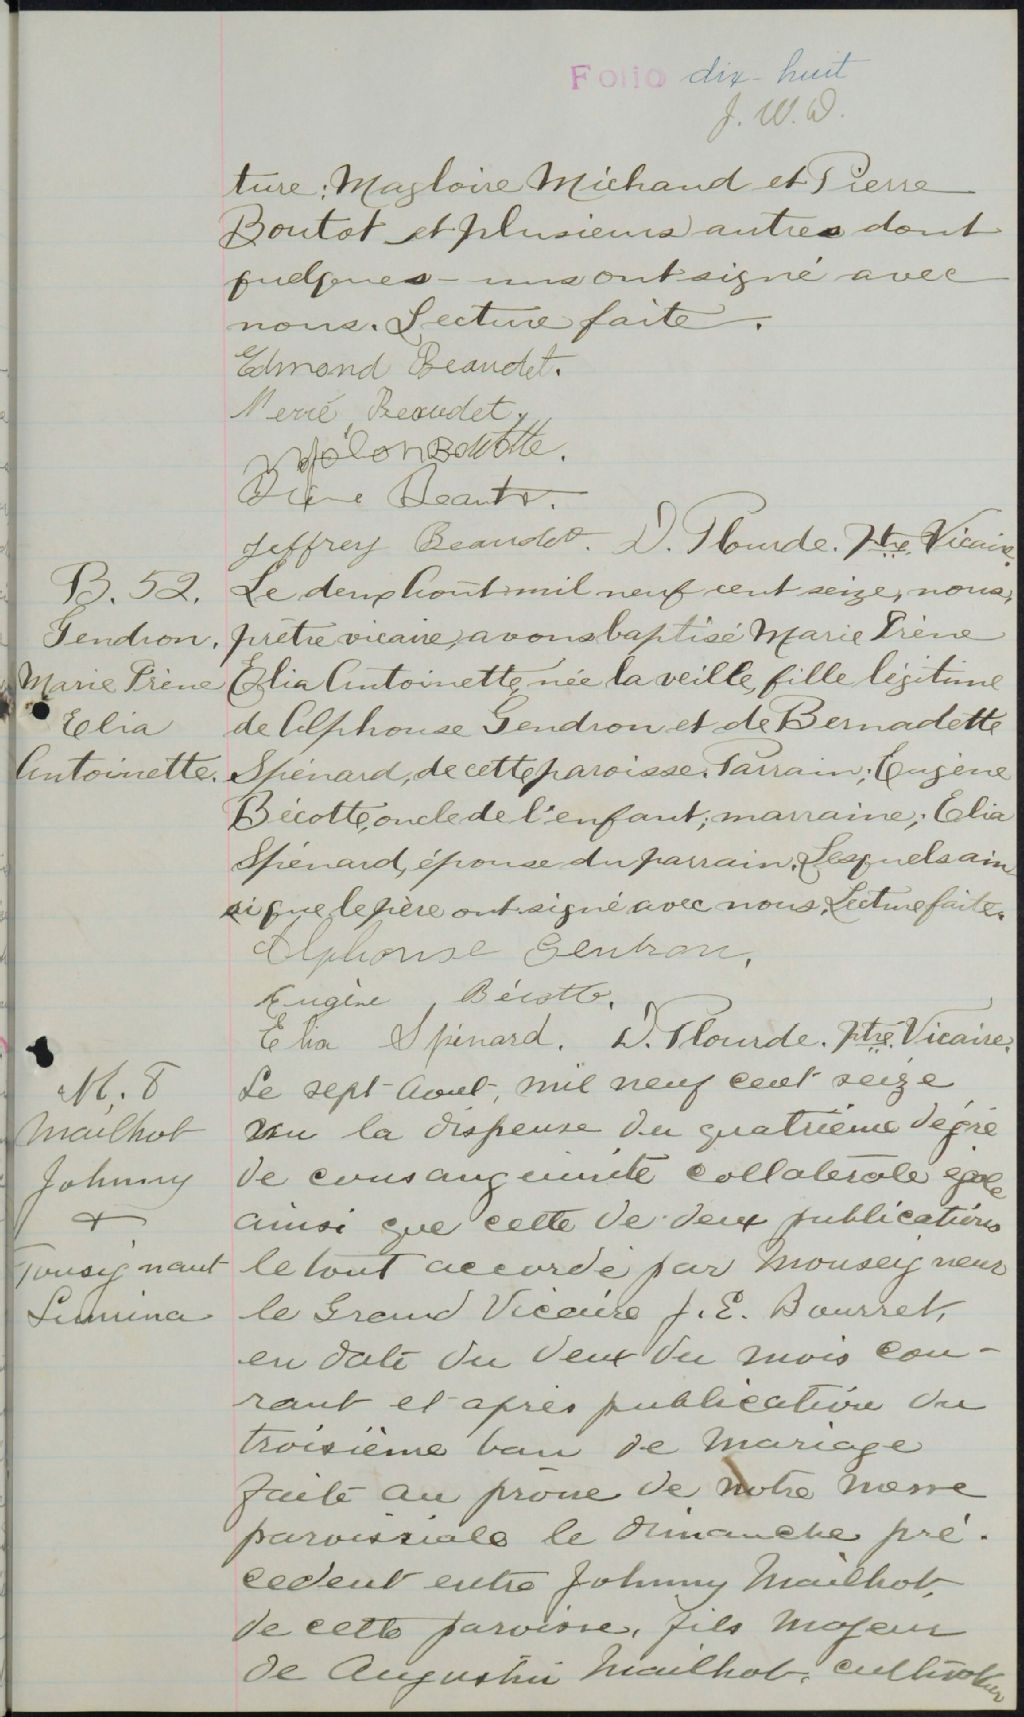 Folio dix-huit
J. W. D.
ture; Magloire Michaud et Pierre
Boutot et plusieurs autres dont
quelques-uns ont signé avec
nous. Lecture faite.
Edmond Beaudet.
Beaudet,
Beaudet.
Jeffrey Beaudet. D. Plourde. Ptre Vicaire.
B. 52.
Gendron,
Marie Irène
Elia
Antoinette.
Le deux Août mil neuf cent seize, nous,
prêtre vicaire, avons baptisé Marie Irène
Elia Antoinette, née la veille, fille légitime
de Alphonse Gendron et de Bernadette
Spénard, de cette paroisse. Parrain; Eugène
Bécotte, oncle de l'enfant; marraine; Elia
Spénard, épouse du parrain. Lesquels ain
si que le père ont signé avec nous. Lecture faite.
Alphonse Gendron.
Eugène Bécotte.
Elia Spénard. D. Plourde. ptre. Vicaire.
M. 8
Mailhot
Johnny
+
Tousignant
Lumina
Le sept Aout, mil neuf cent seize
vu la dispense du quatrième dégré
de consanguinité collatérale égale
ainsi que celle de deux publications
le tout accordé par Monseigneur
le Grand Vicaire J. E. Bourret,
en date du deux du mois cou-
rant et après publication du
troisième ban de mariage
faite au prône de notre messe
paroissiale le dimanche pré-
cedent entre Johnny Mailhot,
de cette paroisse, fils majeur
de Augustin Mailhot, cultivateur